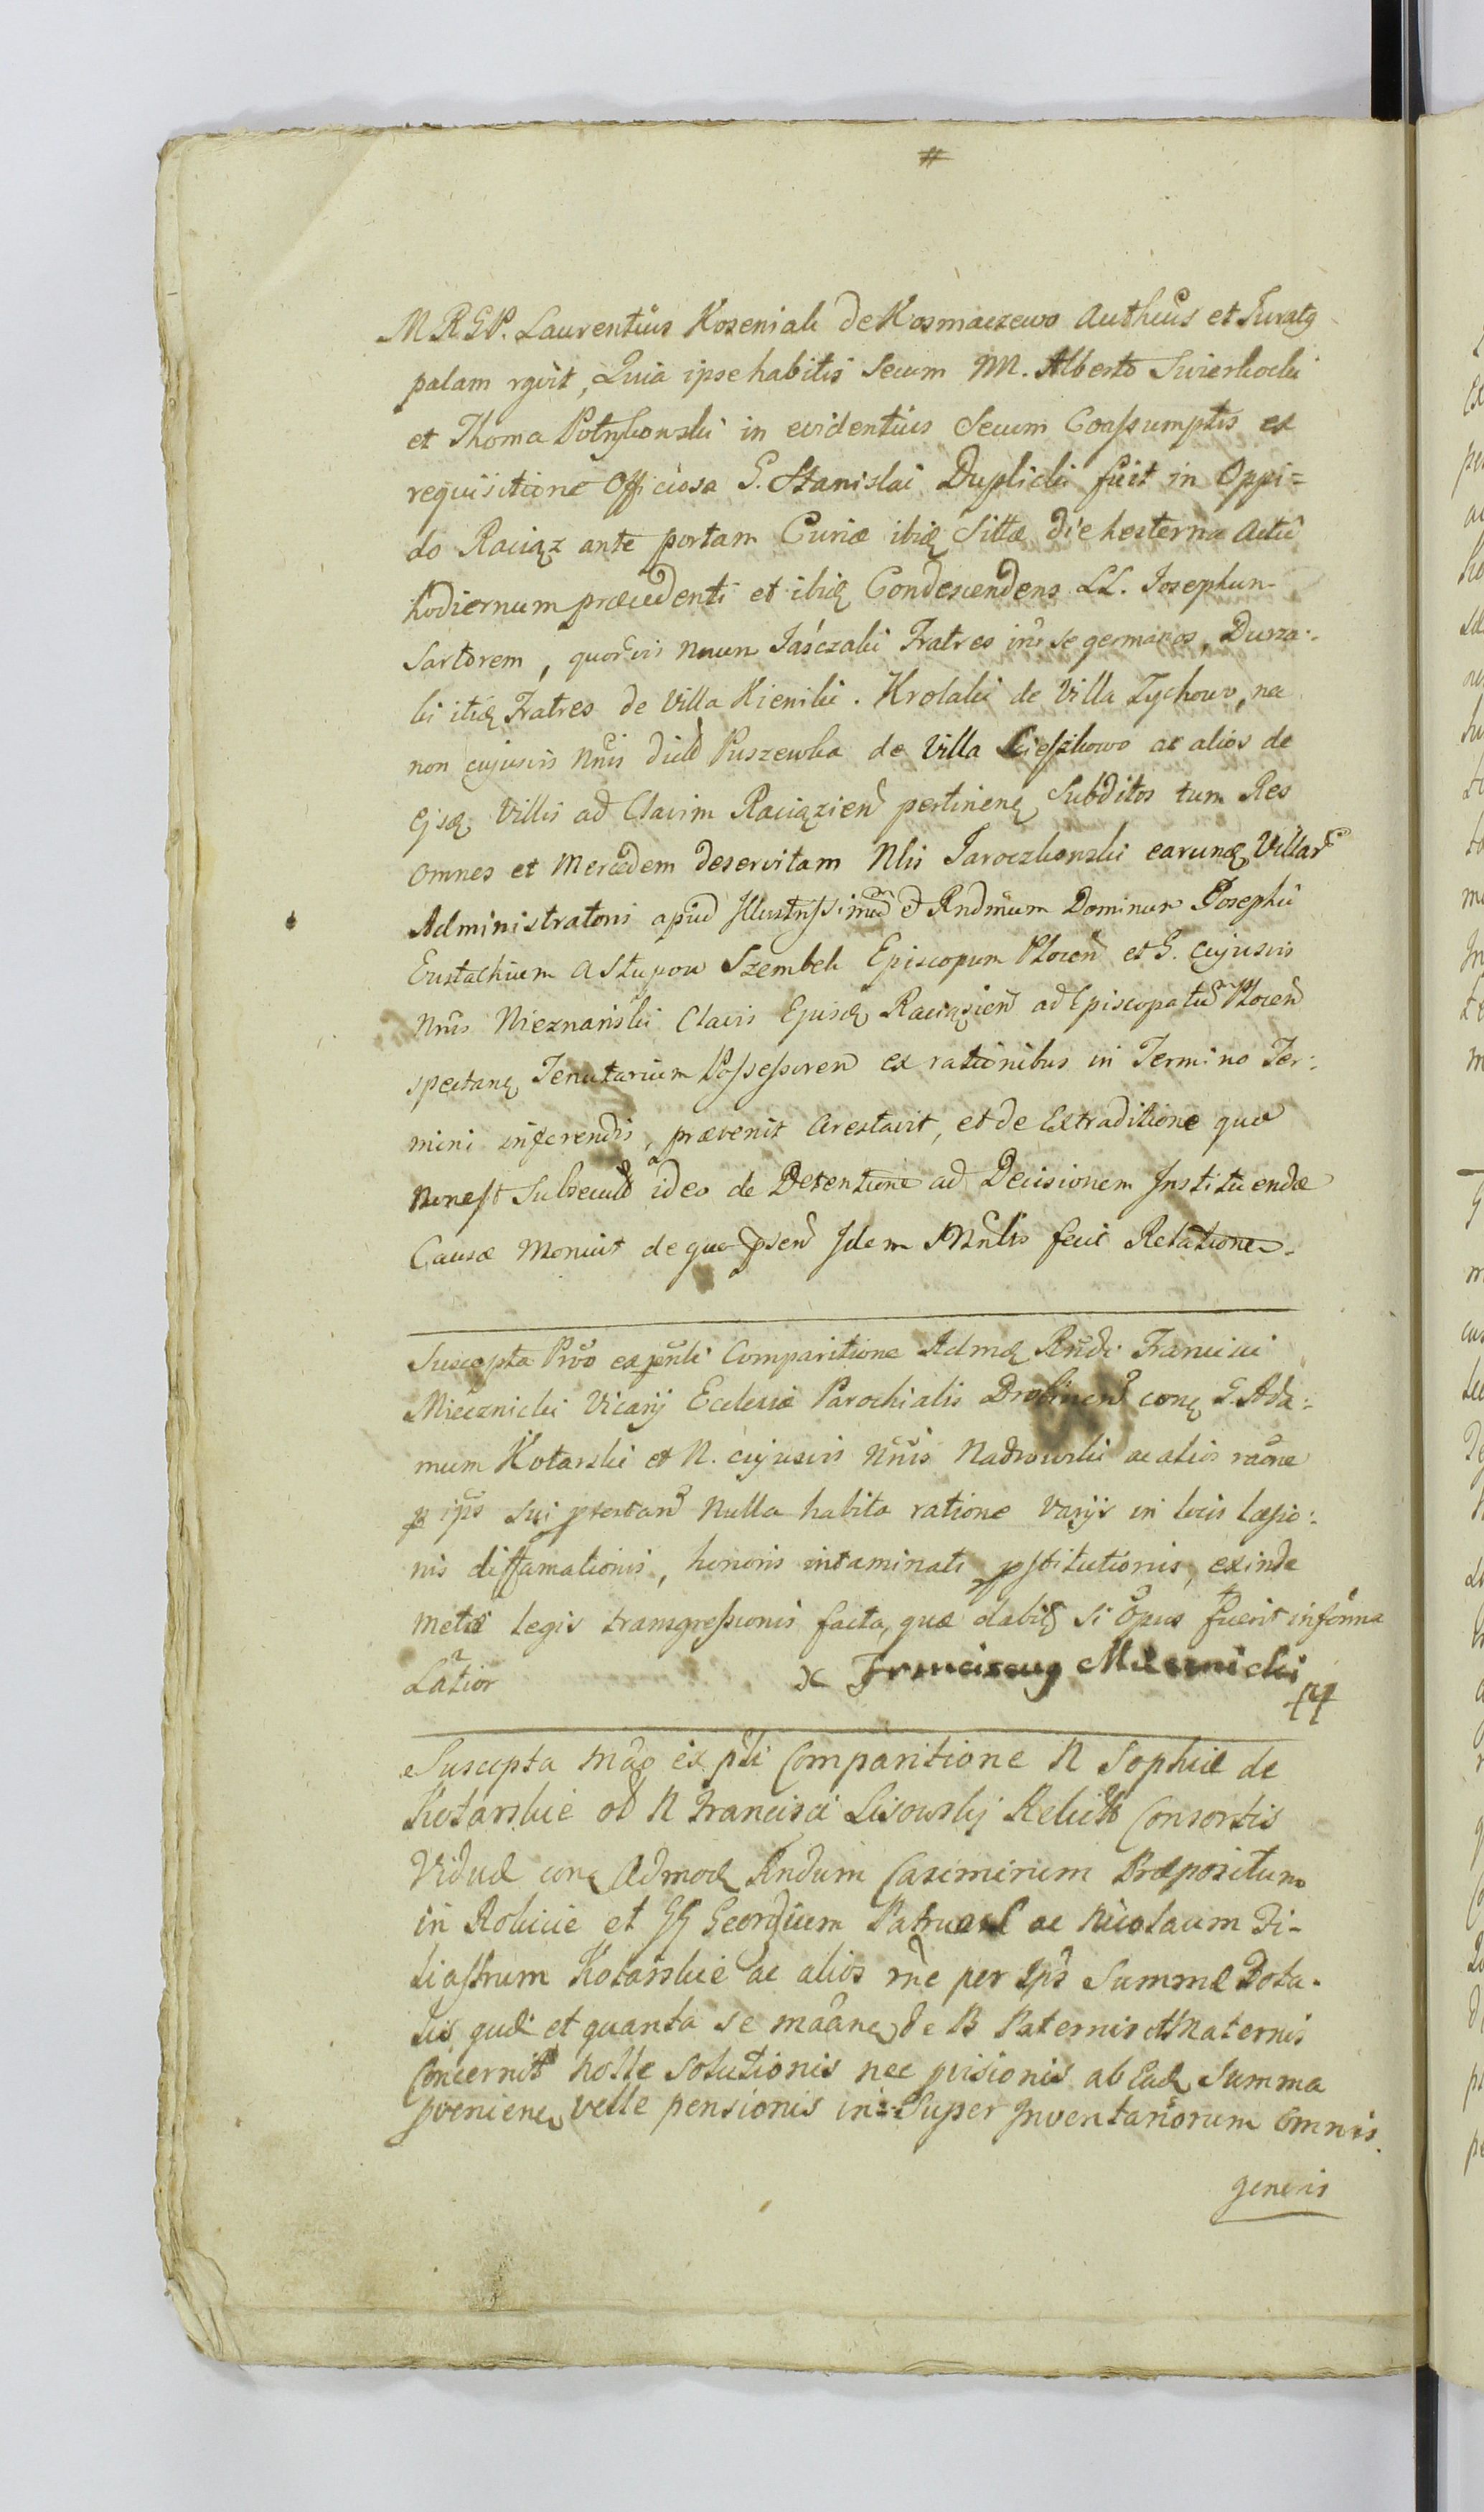 #
M. R. G. P. Laurentius Koseniak de Kosmaczewo Authcus et Juratq
palam rgvit, Quia ipse habitis secum M. Alberto Swierkocki
et Thoma Potrykowski in evidentius Secum Coassumptis ex
requisitione Officiosa G. Stanislai Duplicki fuit in Oppi=
do Raciąz ante portam Curiæ ibiq Sittæ die hesterna Actu
hodiernum præcedenti et ibiq Condescendens LL. Josephum
Sartorem, quorvis nnun Jaśczaki Fratres intr se germanos, Durza-
ki itiq Fratres de Villa Kieniki. Krolaki de Villa Zychowo, nec
non cujusvis nnis dict Puszewka de Villa Kieszkowo ac alios de
Ejsq Villis ad Clavim Raciązien pertinenq Subditos tum Res
omnes et Mercedem deservitam Nlis Jaroczkowski earunq Villar
Administratoris apud Illustrissimum et Rndmum Dominum Josephu
Eustachium a Stupow Szembek Episcopum Plocen et G. cujusvis
nnis Nieznański Clavis Ejusq Raciązien ad Episcopatu Plocen
spectanq Tenutarium Possessorem ex rationibus in Termino Ter:
mini inferendis, prævenit arestavit, et de Extraditione quæ
non est Subsecuta ideo de Detentione ad Decisionem Instituendæ
Causæ Monuit de quo psen Idem Mnlis fecit Relatione.
Suscepta Prvo ex pnli Comparitione Admq Rndi Francisci
Miecznicki Vicarij Ecclesiæ Parochialis Drobinen conq G. Ada:
mum Kotarski et N. cujusvis nnis Nadrowski ac alios raone
p ips sui psonan nulla habita ratione varijs in locis læsio:
nis diffamationis, honoris intaminati pstitutionis, exinde
metæ legis transgressionis facta, quæ dabit Si Opus fuerit in forma
Latior x Franciscus Miecznicki
Suscepta mao ex pli Comparitione N Sophiæ de
Kotarskie od N Francisci Lisowskj Relictæ Consortis
Viduæ conq Admoq Rndum Casimirum Præpositum
in Rokicie et GG Georgium Patruel ac Nicolaum Fi-
liastrum Kotarskie ac alios rne per Ips Summæ Dota-
lis quæ et quanta se maanq de B Paternis et Maternis
Concernit nolle Solutionis nec pvisionis ab Eaq Summa
pvenienq velle pensionis in=Super Inventariorum omnis
generis